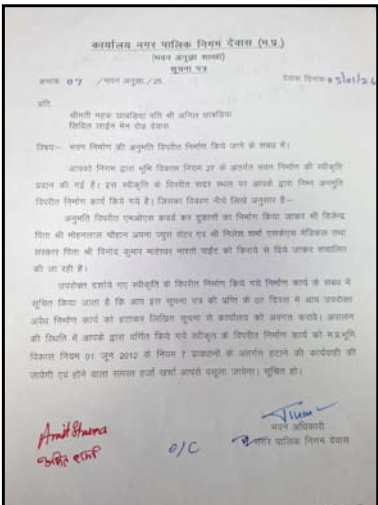 कार्यालय नगर पालिक निगम देवास (म.प्र.)
(भवन अनुज्ञा शाखा)
सूचना पत्र
क्रमांक 07 /भवन अनुज्ञा./25 देवास दिनांक 05/01/26
प्रति,
श्रीमती महक छाबड़िया पति श्री अनिल छाबड़िया
सिविल लाईन मेन रोड देवास
विषय:- भवन निर्माण की अनुमति विपरीत निर्माण किये जाने के संबंध में।
आपको निगम द्वारा भूमि विकास नियम 27 के अंतर्गत भवन निर्माण की स्वीकृति
प्रदान की गई है। इस स्वीकृति के विपरीत सदर स्थल पर आपके द्वारा निम्न अनमुति
विपरीत निर्माण कार्य किये गये है। जिसका विवरण नीचे लिखे अनुसार है:-
अनुमति विपरीत एमओएस कवर्ड कर दुकानों का निर्माण किया जाकर श्री विजेन्द्र
पिता श्री मोहनलाल चौहान अपना ज्युस सेंटर एवं श्री निलेश शर्मा एसकेएस मेडिकल तथा
सरकार पिता श्री विनोद कुमार माहेश्वर नाश्ता पाईंट को किराये से दिये जाकर संचालित
की जा रही है।
उपरोक्त दर्शाये गए स्वीकृति के विपरीत किये गये निर्माण कार्य के संबंध में
सूचित किया जाता है कि आप इस सूचना पत्र की प्राप्ति के 07 दिवस में आप उपरोक्त
अवैध निर्माण कार्य को हटाकर लिखित सूचना से कार्यालय को अवगत करावे। अपालन
की स्थिति में आपके द्वारा वर्णित किये गये स्वीकृत के विपरीत निर्माण कार्य को म.प्र.भूमि
विकास नियम 01 जून 2012 के नियम 7 प्रावधानों के अंतर्गत हटाने की कार्यवाही की
जावेगी एवं होने वाला समस्त हर्जा खर्चा आपसे वसूला जावेगा। सूचित हो।
Amit Sharma
अमित शर्मा
O/C
भवन अधिकारी
नगर पालिक निगम देवास